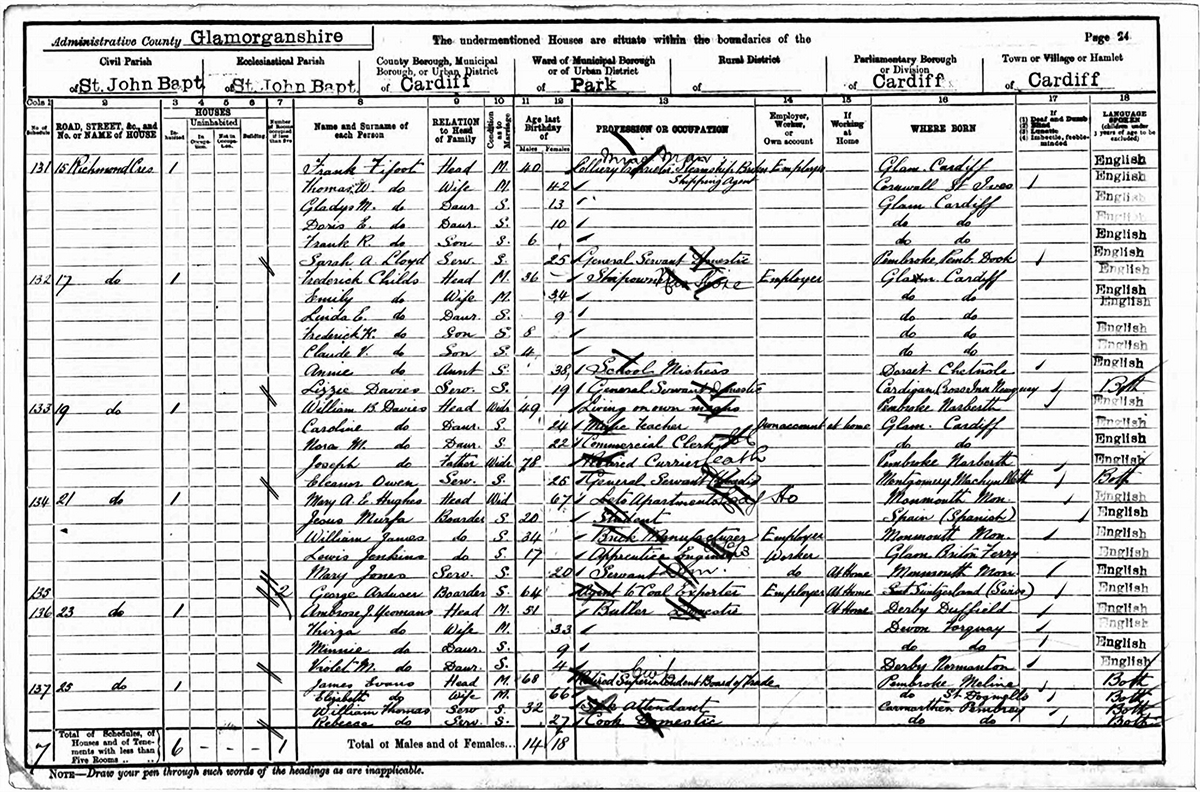 Administrative County Glamorganshire
The undermentioned Houses are situate within the boundaries of the
Page 24
Civil Parish of St. John Bapt
Ecclesiastical Parish of St. John Bapt
County Borough, Municipal Borough, or Urban District of Cardiff
Ward of Municipal Borough or of Urban District of Park
Rural District of
Parliamentary Borough or Division of Cardiff
Town or Village or Hamlet of Cardiff
Cols 1 2 3 4 5 6 7 8 9 10 11 12 13 14 15 16 17 18
No. of Schedule
ROAD, STREET, &c., and No. or NAME of HOUSE
HOUSES
Inhabited
Uninhabited
In Occupation
Not in Occupation
Building
Number of Rooms occupied if less than five
Name and Surname of each Person
RELATION to Head of Family
Condition as to Marriage
Age last Birthday of
Males Females
PROFESSION OR OCCUPATION
Employer, Worker, or Own account
If Working at Home
WHERE BORN
If (1) Deaf and Dumb (2) Blind (3) Lunatic (4) Imbecile, feeble-minded
LANGUAGE SPOKEN (children under 3 years of age to be excluded)
131 15 Richmond Cres 1 Frank Fifoot Head M. 40 Colliery Steamship Broker Employer Glam. Cardiff English
Thomas W. do Wife M. 42 Shipping Agent Cornwall St Ives English
Gladys M. do Daur. S. 13 Glam. Cardiff English
Doris E. do Daur. S. 10 do do English
Frank R. do Son S. 6 do do English
Sarah A Lloyd Serv. S. 25 General Servant Domestic Pembroke Pemb. Dock English
132 17 do 1 Frederick Childs Head M. 36 Employer Glam. Cardiff English
Emily do Wife M. 34 do do English
Linda E. do Daur. S. 9 do do English
Frederick K. do Son S. 8 do do English
Claude V. do Son S. 4 do do English
Annie do Aunt S. 38 School Mistress Dorset Chetnole English
Lizzie Davies Serv. S. 19 General Servant Domestic Cardigan Cross Inn Newquay Both
133 19 do 1 William B. Davies Head Widr 49 Living on own means Pembroke Narberth English
Caroline do Daur. S. 24 Music Teacher Own account at home Glam. Cardiff English
Nora M. do Daur. S. 22 Commercial Clerk do do English
Joseph do Father Widr 78 Retired Currier Pembroke Narberth English
Eleanor Owen Serv. S. 25 General Servant Montgomery Machynlleth Both
134 21 do 1 Mary A. E. Hughes Head Wid 67 Lets Apartments Monmouth Mon. English
Jesus Murfa Boarder S. 20 Student Spain (Spanish) English
William James do S. 34 Brick Manufacturer Employer Monmouth Mon. English
Lewis Jenkins do S. 17 Apprentice Worker Glam. Briton Ferry English
Mary Jones Serv. S. 20 Servant do At Home Monmouth Mon English
135 2 George Boarder S. 64 Agent to Coal Exporter Employer At Home Switzerland (Swiss) English
136 23 do 1 Ambrose J. Yeomans Head M. 51 Butler Domestic At Home Derby Duffield English
Thirza do Wife M. 33 Devon Torquay English
Minnie do Daur. S. 9 do do English
Violet M. do Daur. S. 4 Derby Normanton English
137 25 do 1 James Evans Head M. 68 Retired Superintendent Board of Trade Pembroke Meline Both
Elizabeth do Wife M. 66 do St Dogmells Both
William Thomas Serv S. 32 Attendant Carmarthen Pembrey Both
Rebecca do Serv S. 27 Cook Domestic do do Both
7 Total of Schedules, of Houses and of Tenements with less than Five Rooms 6 - - - 1 Total of Males and of Females... 14 18
NOTE—Draw your pen through such words of the headings as are inapplicable.